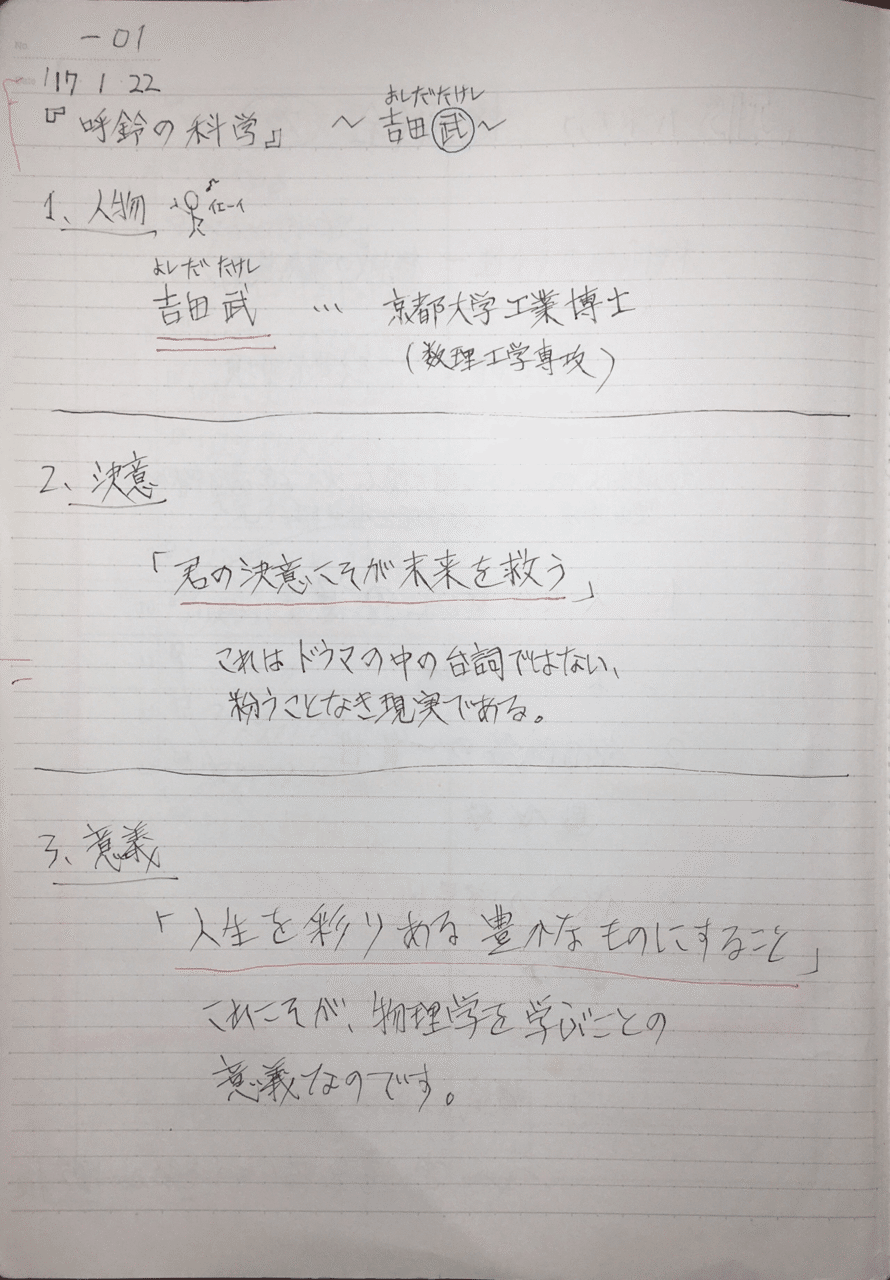 -01
'17 1 22
『呼鈴の科学』 〜吉田武〜
よしだたけし
1、人物 イエーイ
よしだ たけし
吉田武 … 京都大学工業博士
(数理工学専攻)
2、決意
「君の決意こそが未来を救う」
これはドラマの中の台詞ではない、
紛うことなき現実である。
3、意義
「人生を彩りある豊かなものにすること」
これこそが、物理学を学ぶことの
意義なのです。